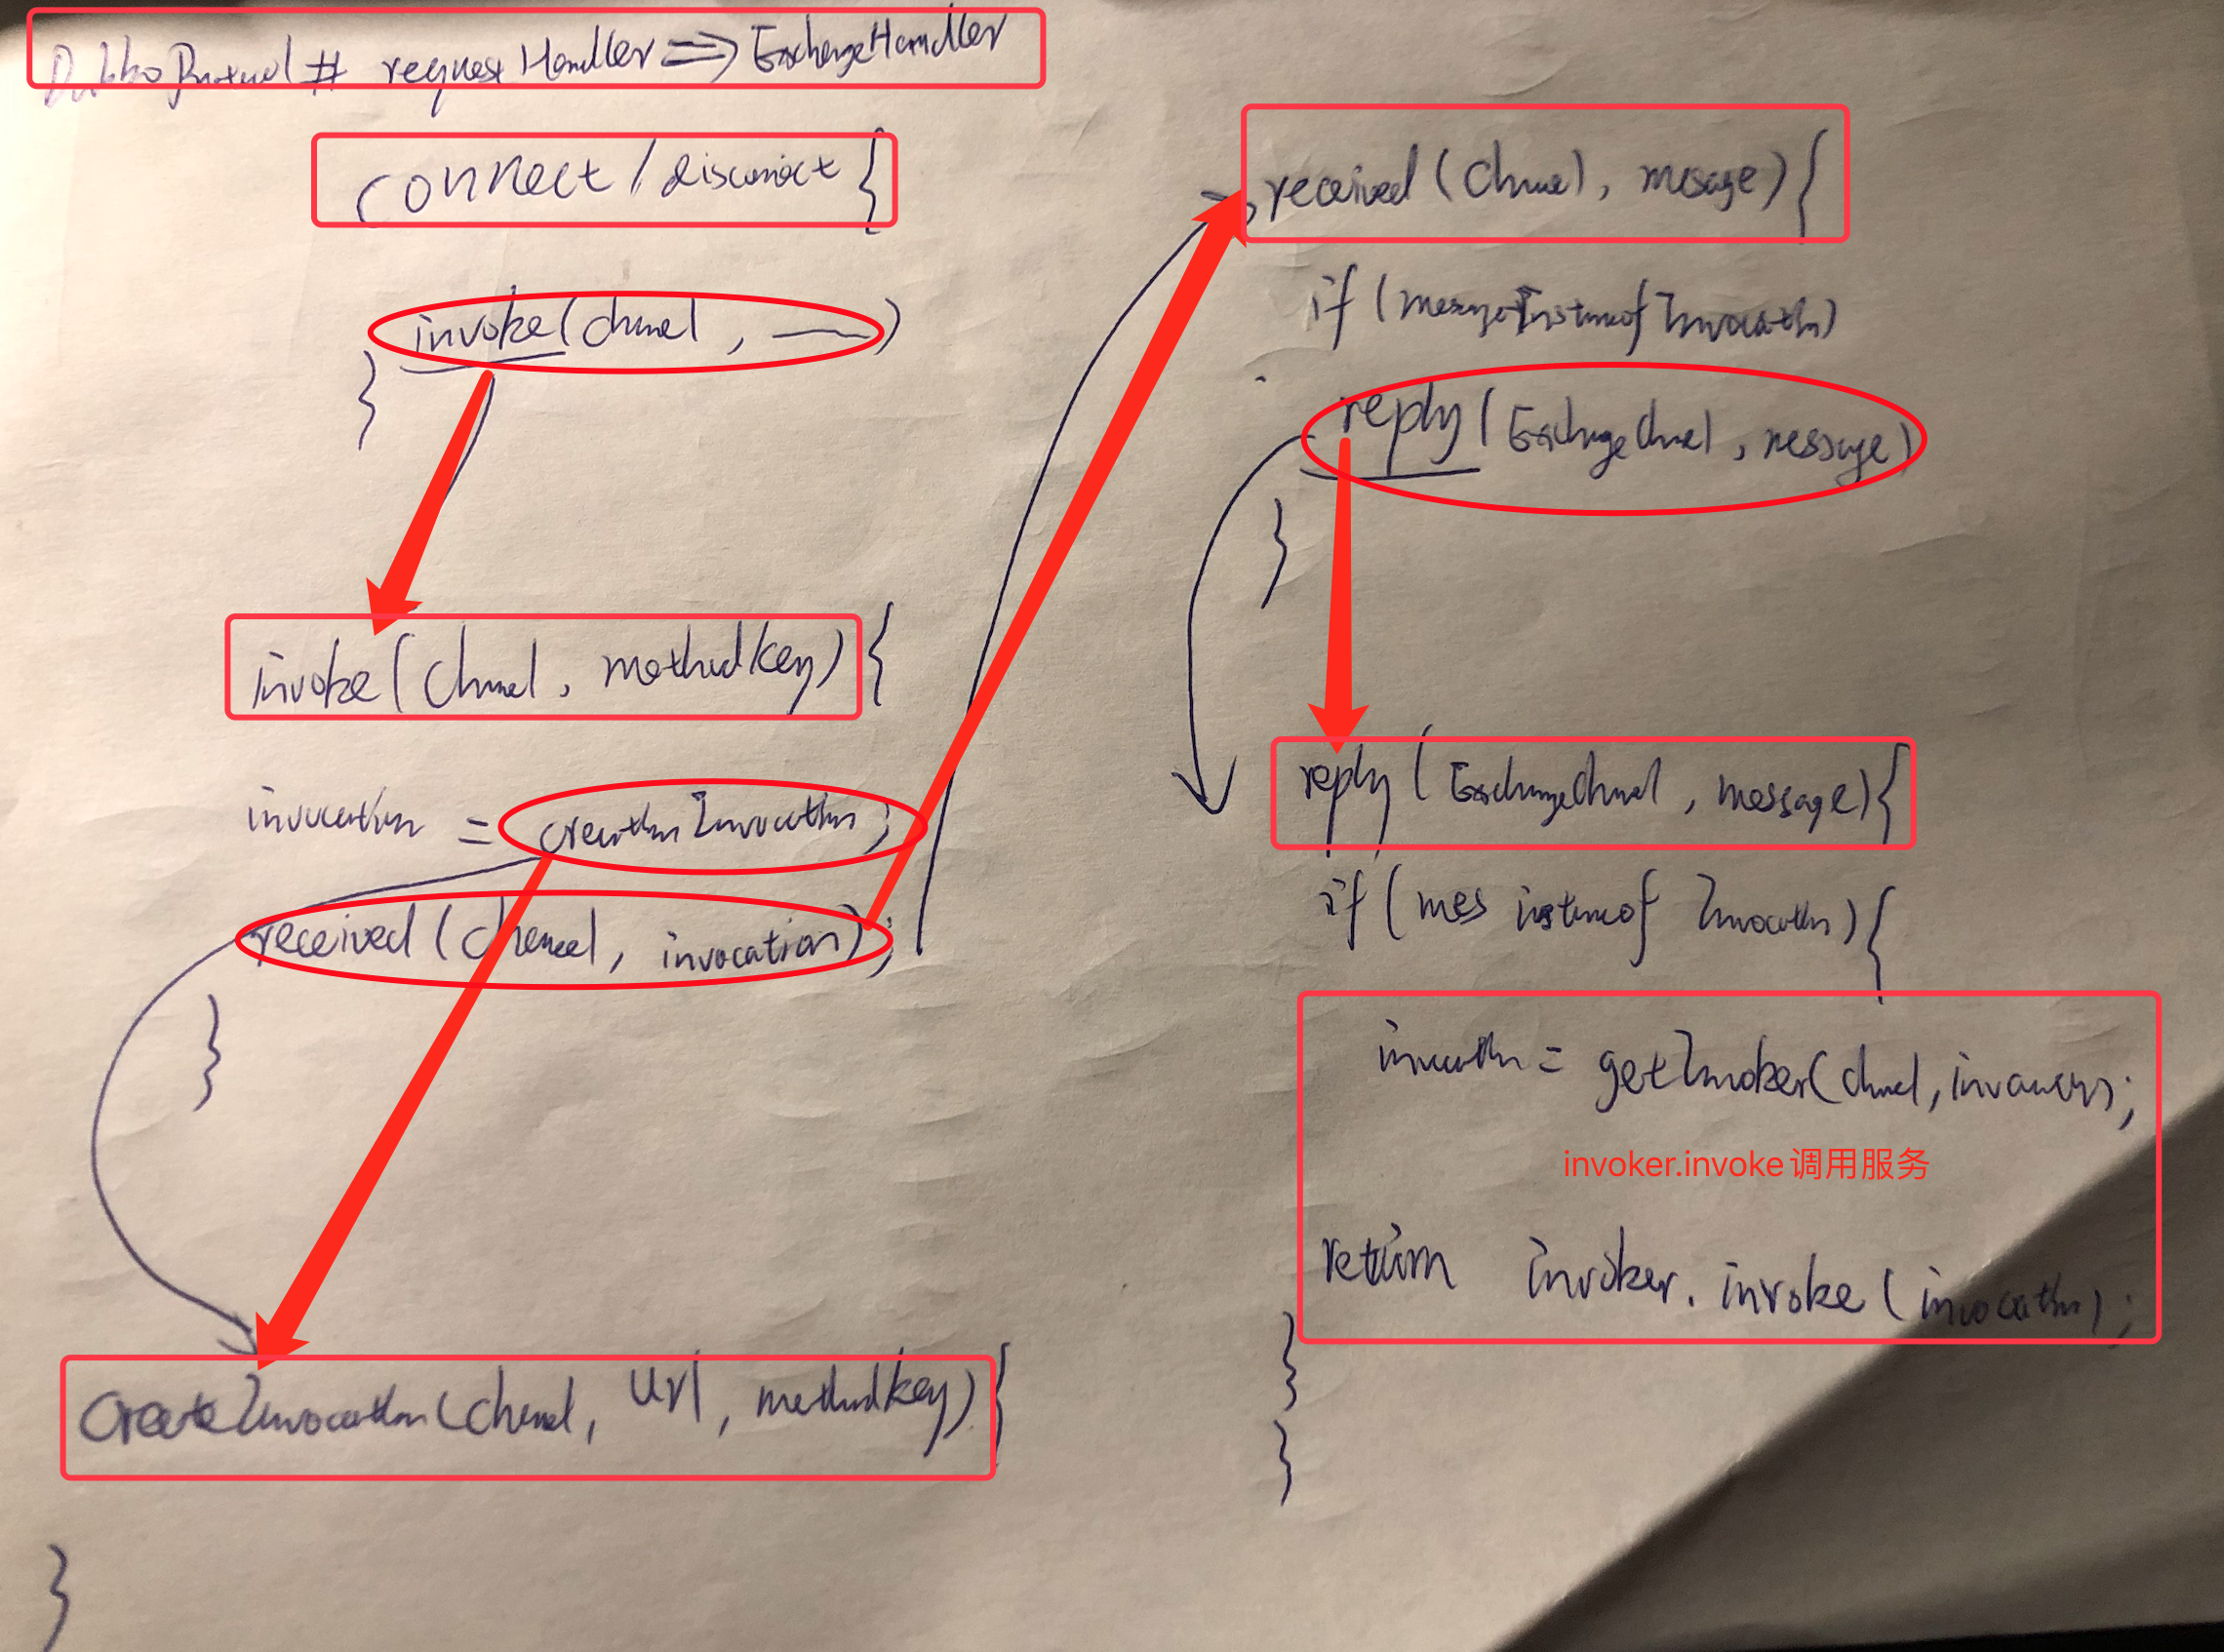 DubboProtocol # requestHandler => ExchangeHandler
connect / disconnect {
invoke(channel, —)
}
invoke(channel, methodKey) {
invocation = creationInvocation;
received (channel, invocation);
}
createInvocation(channel, url, methodKey) {
}
received (channel, message) {
if (message instanceof Invocation)
reply (ExchangeChannel, message)
}
reply (ExchangeChannel, message) {
if (mes instanceof Invocation) {
= getInvoker(channel,
invoker.invoke调用服务
return invoker.invoke(invocation);
}
}